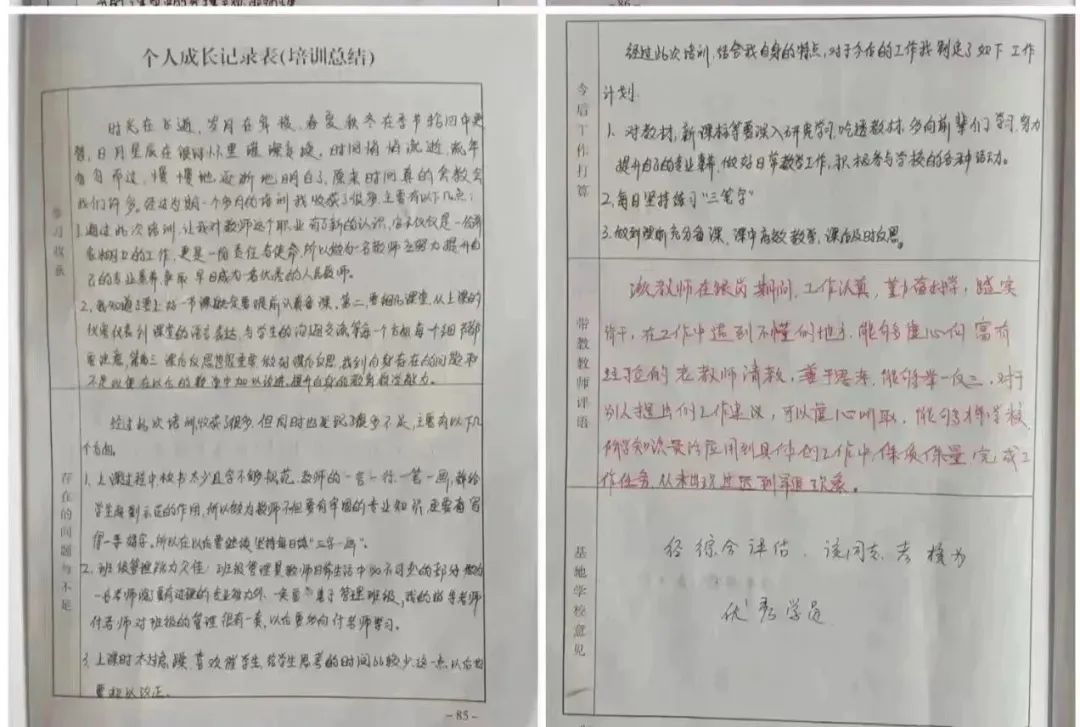 个人成长记录表(培训总结)
学习收获
时光在飞逝，岁月在穿梭，春夏秋冬在季节轮回中更
替，日月星辰在很时
里
时间悄悄流逝，流年
匆匆而过，慢慢地逐渐地明白了，原来时间真的会教会
我们许多。经过为期一个多月的培训我收获了很多，主要有以下几点：
1.通过此次培训，让我对教师这个职业有了新的认识，它不仅仅是一份养
家糊口的工作，更是一份责任与使命，所以做为一名教师应努力提升自
己的专业素养，争取早日成为一名优秀的人民教师。
2、我知道了要上好一节课就必要提前认真备课。第二，要相
课堂，从上课的
仪容仪表到课堂的语言表达，与学生的沟通交流等每一个方面每个细节都
要注意，第三，课后反思也很重要，做到课后反思，找到自身存在的问题和
不足以便在以后的教学中加以改进，提升自身的教育教学能力。
存在的问题与不足
经过此次培训收获了很多，但同时也发现了很多不足，主要有以下几
个方面。
1、上课过程中板书太少且字不够规范，教师的一言一行，一笔一画，都给
学生起到示范的作用，所以做为教师不但要有牢固的专业知识，更要有写
得一手好字。所以在以后要继续坚持每日练“三字一画”。
2、班级管理能力欠佳：班级管理是教师日常生活中必不可少的部分，做为
一名老师除了要有过硬的专业能力外，一定要
善于管理班级，我的指导老师
付老师对班级的管理很有一套，以后要多向付老师学习。
3、上课时不过启
，喜欢
学生，给学生思考的时间比较少这一点，以后也
要加以改正。
-85-
今后工作打算
经过此次培训，结合我自身的特点，对于今后的工作我制定了如下工作
计划.
1、对教材，新课标等要深入研究学习，吃透教材，多向前辈们学习，努力
提升自己的专业素养，做好日常教学工作，积极参与学校的各种活动。
2、每日坚持练习“三笔字”
3.做到课前充分备课，课中高效教学，课后及时反思。
带教教师评语
该教师在跟岗期间，工作认真，勤奋好学，踏实
肯干，在工作中遇到不懂的地方，能够虚心向富有
经验的老教师请教，善于思考，能够举一反三，对于
别人提出的工作建议，可以虚心听取，能够将学校
所学知识灵活应用到具体的工作中，保质保量完成工
作任务，从未出现过迟到早退现象。
基地学校意见
经综合评估，该同志考核为
优秀学员